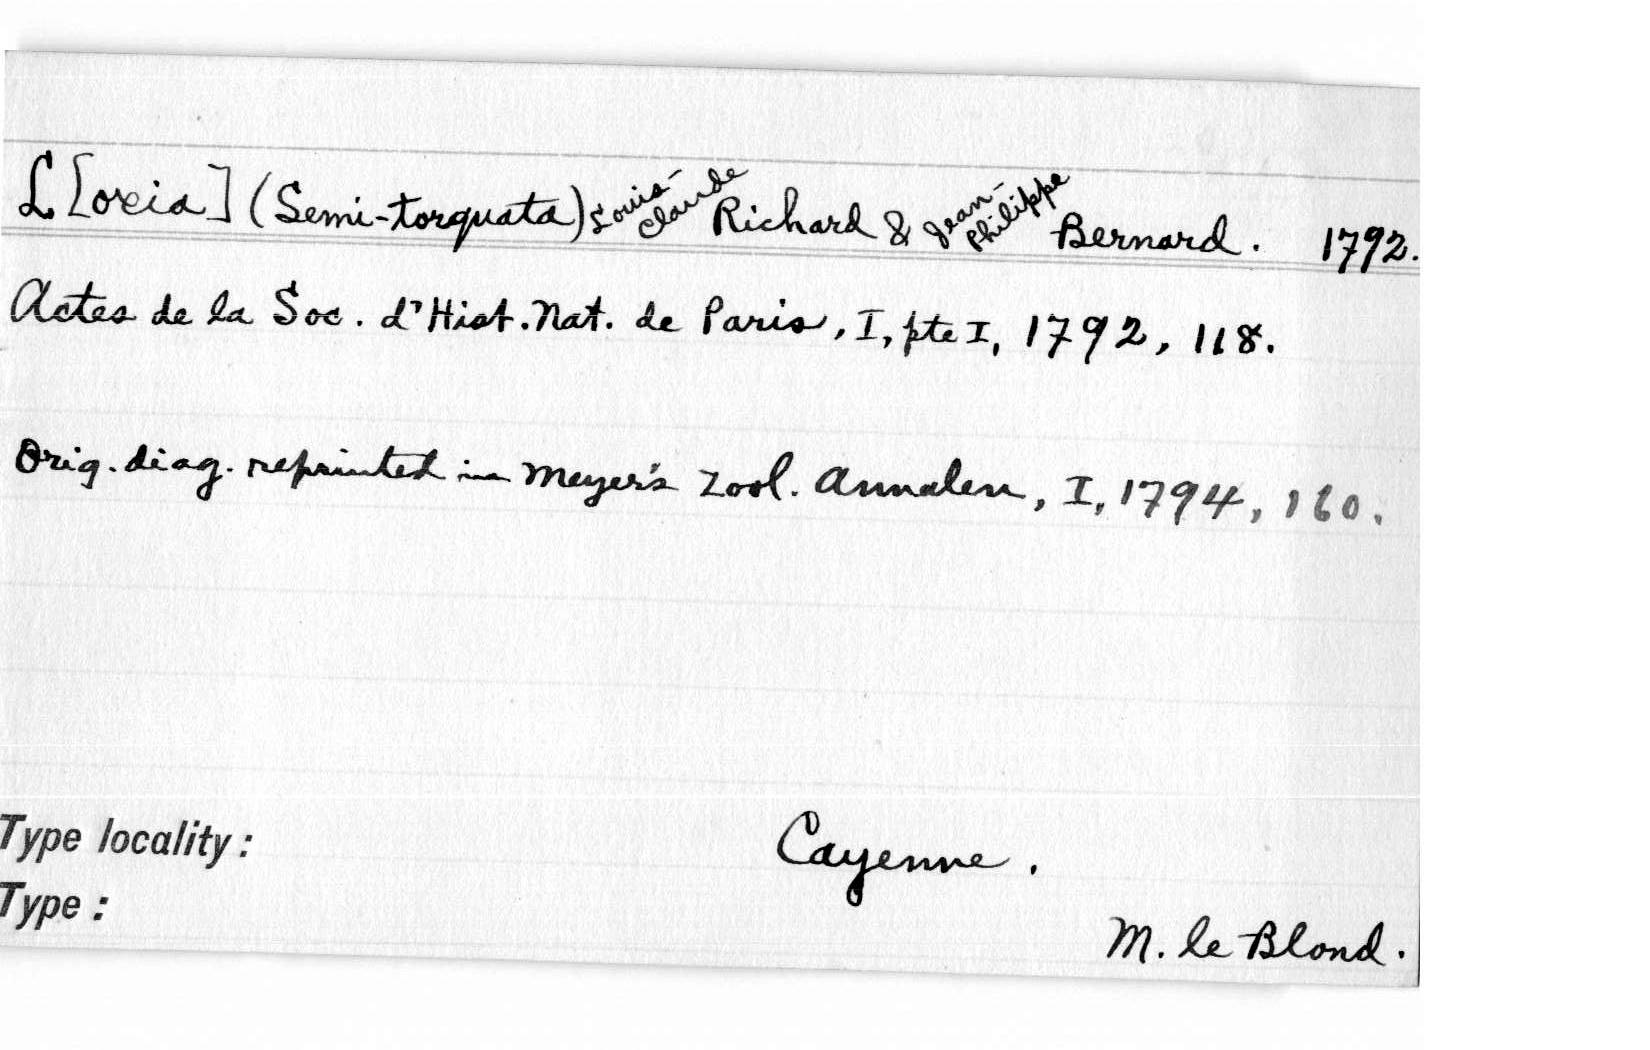 L[oxia] (Semi-torquata) Louis-Claude Richard & Jean-Philippe Bernard. 1792.
Actes de la Soc. d'Hist. Nat. de Paris, I, pte I, 1792, 118.
Orig. diag. reprinted in Meyer's Zool. Annalen, I, 1794, 160.
Type locality: Cayenne.
Type:
M. le Blond.